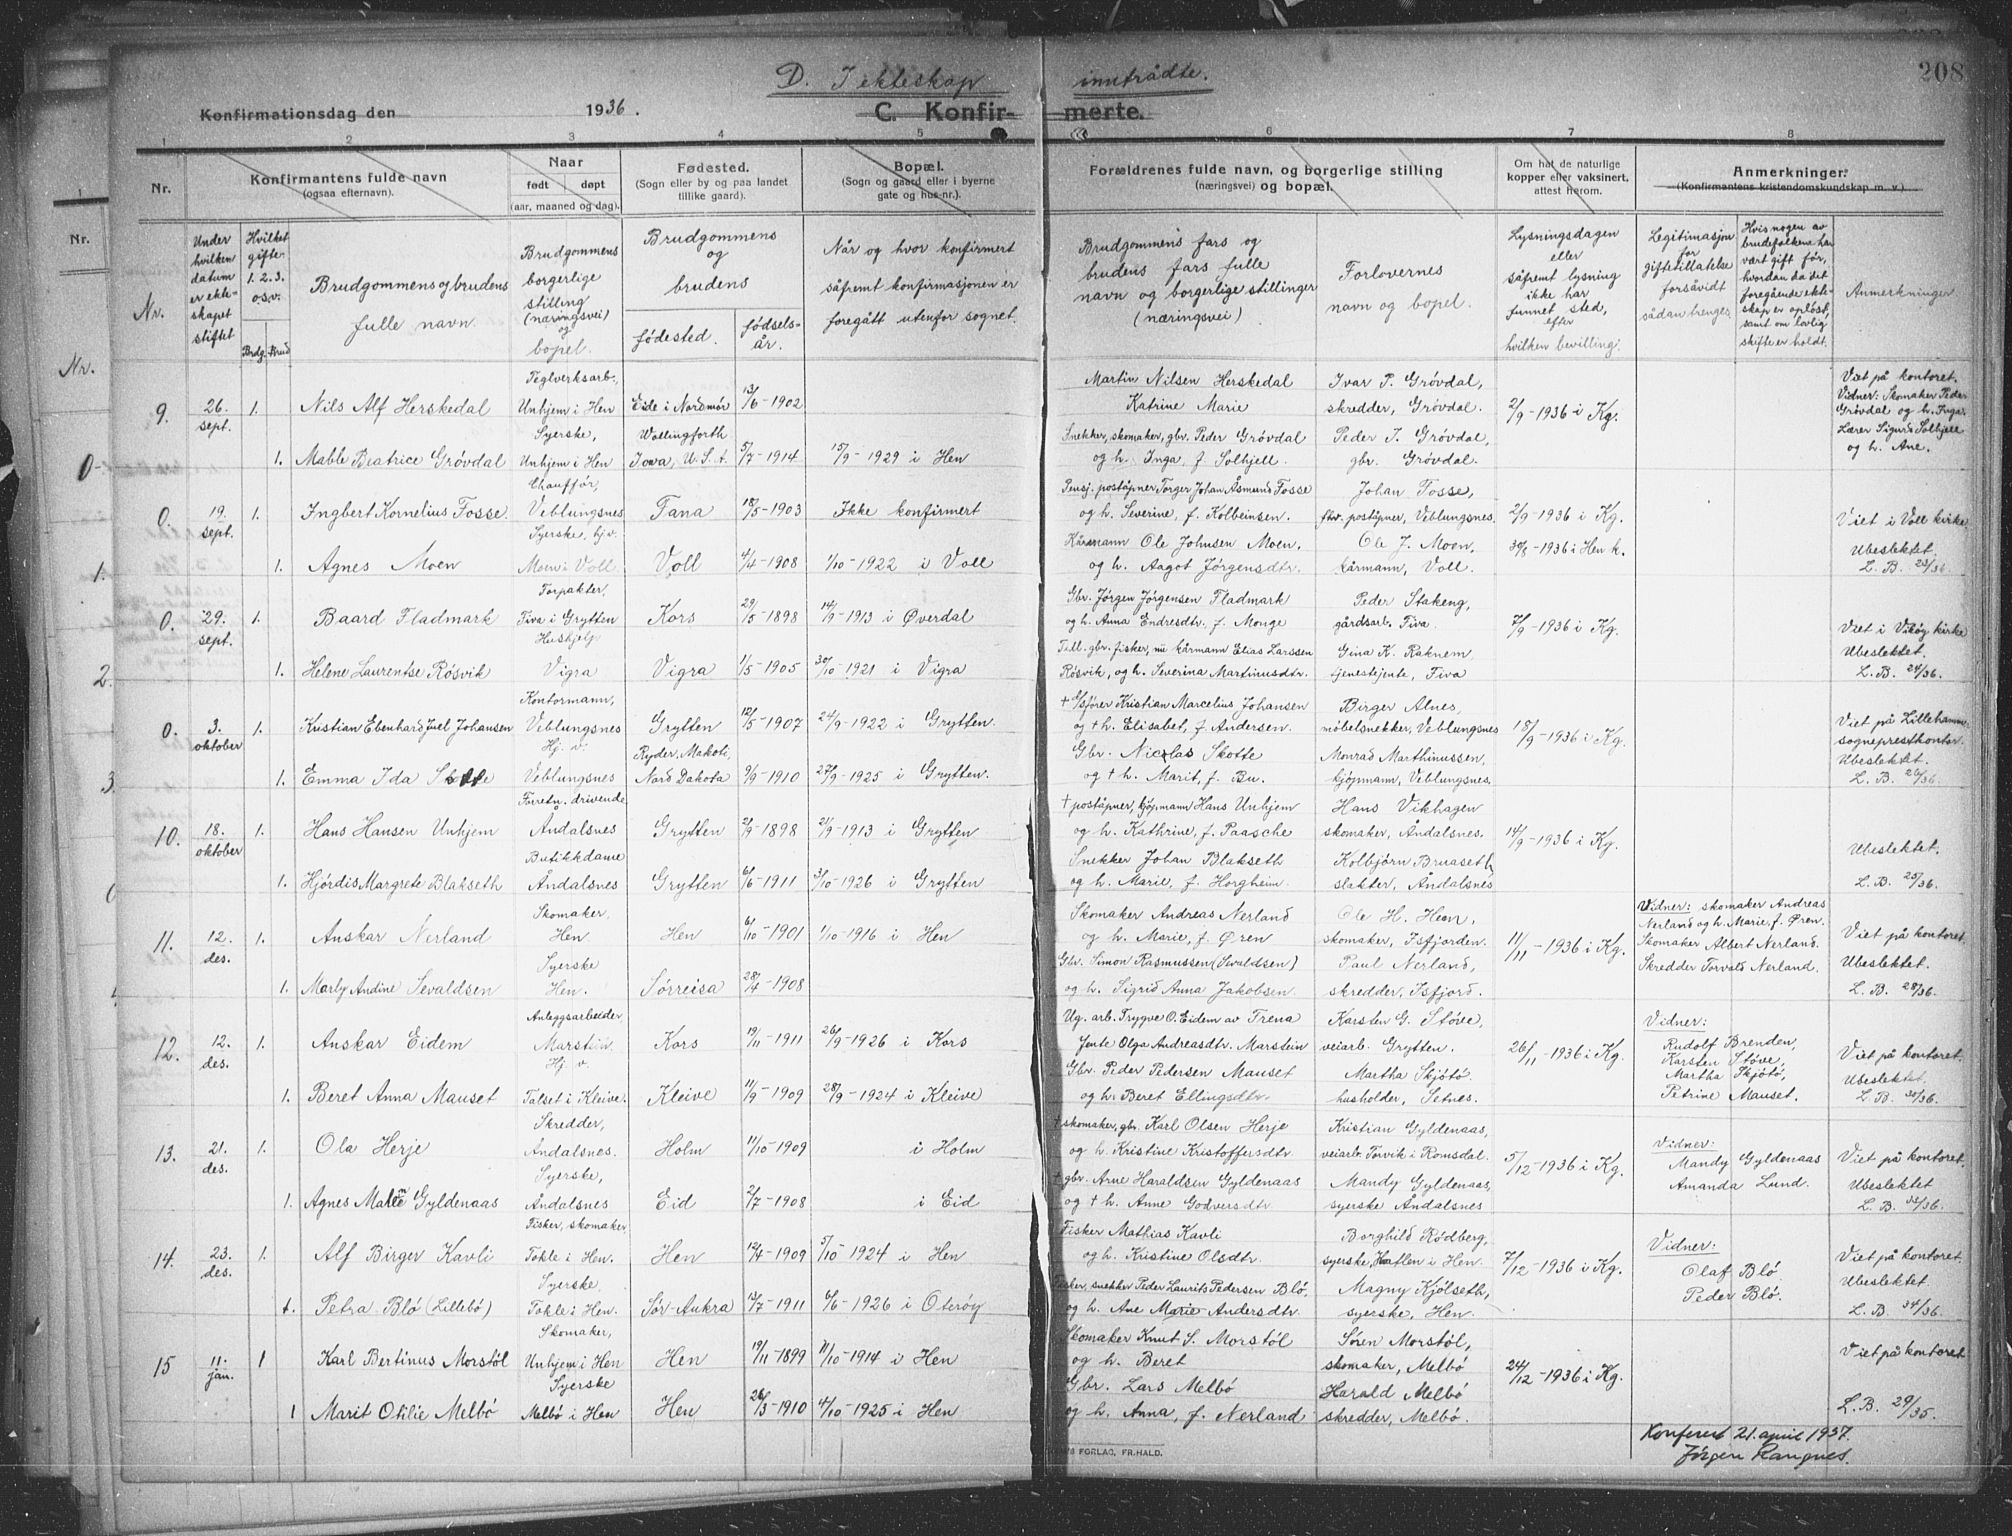 208
D. I ekteskap inntrådte.
Konfirmationsdag den 1936.
C. Konfirmerte.
1 2 3 4 5 6 7 8
Nr.
Konfirmantens fulde navn
(ogsaa efternavn).
Naar
født døpt
(aar, maaned og dag).
Fødested.
(Sogn eller by og paa landet
tillike gaard).
Bopæl.
(Sogn og gaard eller i byerne
gate og hus-nr.).
Forældrenes fulde navn, og borgerlige stilling
(næringsvei) og bopæl.
Om hat de naturlige
kopper eller vaksinert,
attest herom.
Anmerkninger.
(Konfirmantens kristendomskundskap m. v.)
Nr.
Under
hvilken
datum
er ekte-
skapet
stiftet
Hvilket
gifte
1. 2. 3.
o.s.v.
Brdg. Brud
Brudgommens og brudens
fulle navn.
Brudgommens
borgerlige
stilling
(næringsvei)
og
bopel.
Brudgommens
og
brudens
fødested.
fødsels-
år.
Når og hvor konfirmert
såfremt konfirmasjonen er
foregått utenfor sognet.
Brudgommens fars og
brudens fars fulle
navn og borgerlige stillinger
(næringsvei)
Forlovernes
navn og bopel.
Lysningsdagen
eller
såfremt lysning
ikke har
funnet sted,
efter
hvilken bevilling.
Legitimasjon
for
giftetillatelse
forsåvidt
sådan trenges
Hvis nogen av
brudefolkene har
vært gift før,
hvordan da det
foregående ekte-
skap er opløst,
samt om lovlig
skifte er holdt.
Anmerkninger
9. 26. sept. 1. Nils Alf Herskedal
Teglverksarb., Unhjem i Hen
Eide i Nordmør 13/6-1902
Martin Nilsen Herskedal
Katrine Marie
Ivar P. Grøvdal,
skredder, Grøvdal.
2/9-1936 i Kg.
Viet på kontoret.
Vidner: Skomaker Peder
Grøvdal og h. Inga.
Lærer Sigurd Solhjell
og h. Ane.
1. Mable Beatrice Grøvdal
Syerske, Unhjem i Hen
Wallingforth Iowa, U.S.A. 5/7-1914
15/9-1929 i Hen
Snekker, skomaker, gbr. Peder Grøvdal
og h. Inga, f. Solhjell.
Peder J. Grøvdal,
gbr. Grøvdal.
0. 19. sept. 1. Ingbert Kornelius Fosse.
Chauffør, Veblungsnes
Tana 18/5-1903
Ikke konfirmert
Pensj. poståpner Torger Johan Åsmund Fosse
og h. Severine, f. Kolbeinsen.
Johan Fosse,
fhv. poståpner, Veblungsnes.
2/9-1936 i Kg.
30/8-1936 i Hen k.
Viet i Voll kirke
Ubeslektet.
L. B. 23/36.
1. Agnes Moen
Syerske, hj.v. Moen i Voll.
Voll 4/4-1908
1/10-1922 i Voll
Kårmann Ole Johnsen Moen,
og h. Aagot Jørgensdtr.
Ole J. Moen,
kårmann, Voll.
0. 29. sept. 1. Baard Fladmark
Forpakter, Fiva i Grytten
Kors 29/5-1898
14/9-1913 i Øverdal
Gbr. Jørgen Jørgensen Fladmark
og h. Anna Endresdtr. f. Monge
Peder Stakeng,
gårdsarb. Fiva.
7/9-1936 i Kg.
Viet i Vikøy kirke
Ubeslektet.
L. B. 24/36.
1. Helene Laurentse Røsvik
Hushjelp Vigra
Vigra 1/5-1905
30/10-1921 i Vigra
Till. gbr. fisker, nu kårmann Elias Larssen
Røsvik, og h. Severina Martinusdtr.
Gina K. Raknem,
tjenestejente, Fiva
0. 3. oktober 1. Kristian Ebenhard Juel Johansen
Kontormann, Veblungsnes
Grytten 12/5-1907
24/9-1922 i Grytten.
† Gsfører Kristian Marcelius Johansen
og † h. Elisabet, f. Andersen.
Birger Alnes,
møbelsnekker, Veblungsnes
18/9-1936 i Kg.
Viet på Lillehamm.
sogneprestkontor.
Ubeslektet.
L. B. 26/36.
1. Emma Ida Skotte
Hj. v. Veblungsnes
Ryder, Makoti, Nord Dakota 9/9-1910
27/9-1925 i Grytten.
Gbr. Nicolas Skotte
og † h. Marit, f. Bu.
Monrad Marthinussen,
kjøpmann, Veblungsnes.
10. 18. oktober 1. Hans Hansen Unhjem
Forretn. drivende, Åndalsnes
Grytten 2/9-1898
21/9-1913 i Grytten
† poståpner, kjøpmann Hans Unhjem
og h. Kathrine, f. Paasche
Hans Vikhagen
skomaker, Åndalsnes.
14/9-1936 i Kg.
Ubeslektet.
L. B. 25/36.
1. Hjørdis Margrete Blakseth
Butikkdame Åndalsnes
Grytten 6/6-1911
31/10-1926 i Grytten
Snekker Johan Blakseth
og h. Marie, f. Horgheim.
Kolbjørn Bruaseth,
slakter, Åndalsnes
11. 12. des. 1. Anskar Nerland
Skomaker, Hen.
Hen 6/10-1901
1/10-1916 i Hen
Skomaker Andreas Nerland
og h. Marie, f. Øren
Ole H. Hen,
skomaker, Isfjorden.
11/11-1936 i Kg.
Vidner: skomaker Andreas
Nerland og h. Marie, f. Øren.
Skomaker Albert Nerland.
Skredder Torvald Nerland.
Viet på kontoret.
Ubeslektet.
L. B. 28/36.
1. Marly Andine Sevaldsen
Syerske Hen.
Sørreisa 28/4-1908
Gbr. Simon Rasmussen (Sevaldsen)
og h. Sigrid Anna Jakobsen.
Paul Nerland,
skredder, Isfjord.
12. 12. des. 1. Anskar Eidem
Anleggsarbeider Marstein,
Kors 19/11-1911
26/9-1926 i Kors
Ug. arb. Trygve O. Eidem av Frena
Jente Olga Andreasdtr. Marstein
Karsten G. Støve,
veiarb. Grytten.
26/11-1936 i Kg.
Vidner:
Rudolf Brenden,
Karsten Støve,
Martha Skjøtø,
Petrine Mauset.
Viet på kontoret.
Ubeslektet.
L. B. 30/36.
1. Beret Anna Mauset
Hj. v. Talset i Kleive.
Kleive 11/9-1909
28/9-1924 i Kleive
Gbr. Peder Pedersen Mauset
og h. Beret Ellingsdtr.
Martha Skjøtø,
husholder, Setnes.
13. 21. des. 1. Ola Herje
Skredder, Åndalsnes.
Holm 11/10-1909
i Holm
† skomaker, gbr. Karl Olsen Herje
og h. Kristine Kristoffersdtr
Kristian Gyldenaas,
veiarb. Torvik i Romsdal.
5/12-1936 i Kg.
Vidner:
Mandy Gyldenaas
Amanda Lund.
Viet på kontoret.
Ubeslektet
L. B. 33/36.
1. Agnes Malene Gyldenaas
Syerske, Åndalsnes
Eid 2/7-1908
i Eid
† gbr. Arne Haraldsen Gyldenaas
og † h. Anne Godversdtr.
Mandy Gyldenaas,
syerske Åndalsnes
14. 23. des. 1. Alf Birger Kavli
Fisker, skomaker, Tokle i Hen.
Hen 12/4-1909
5/10-1924 i Hen
Fisker Mathias Kavli
og h. Kristine Olsdtr.
Borghild Rødberg,
syerske, Hatlen i Hen.
7/12-1936 i Kg.
Vidner:
Olaf Blø
Peder Blø.
Viet på kontoret.
Ubeslektet.
L. B. 34/36.
1. Petra Blø (Lillebø)
Syerske, Tokle i Hen.
Sør-Aukra 13/7-1911
6/6-1926 i Oterøy
Fisker, snekker Peder Laurits Pedersen Blø,
og h. Ane Marie Andersdtr.
Magny Kjølseth,
syerske, Hen.
15 11. jan. 1 Karl Bertinus Morstøl
Skomaker, Unhjem i Hen
Hen 19/11-1899
11/10-1914 i Hen
Skomaker Knut S. Morstøl
og h. Beret
Søren Morstøl,
skomaker, Melbø
24/12-1936 i Kg.
Viet på kontoret
L. B. 29/35.
1 Marit Otilie Melbø
Syerske Melbø i Hen
Hen 26/3-1910
4/10-1925 i Hen
Gbr. Lars Melbø
og h. Anna, f. Nerland
Harald Melbø
skredder, Melbø.
FORLAG, FR.HALD.
Konferert 21. april 1937.
Jørgen Rangnes.